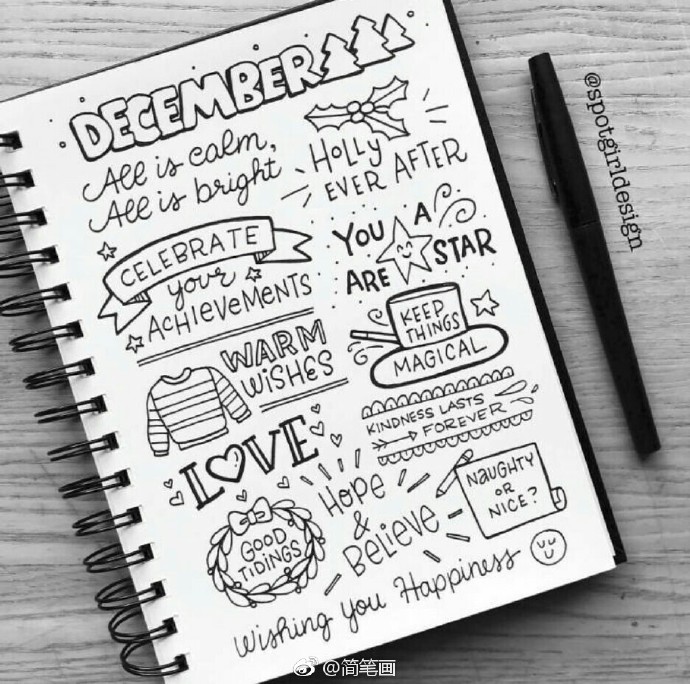 DECEMBER
All is calm,
All is bright
HOLLY
EVER AFTER
CELEBRATE
your
ACHIEVEMENTS
YOU A
ARE STAR
WARM
WISHES
KEEP
THINGS
MAGICAL
LOVE
KINDNESS LASTS
FOREVER
GOOD
TIDINGS
HOPE
&
BELIEVE
NAUGHTY
OR
NICE?
Wishing you Happiness
@spotgirldesign
@简笔画